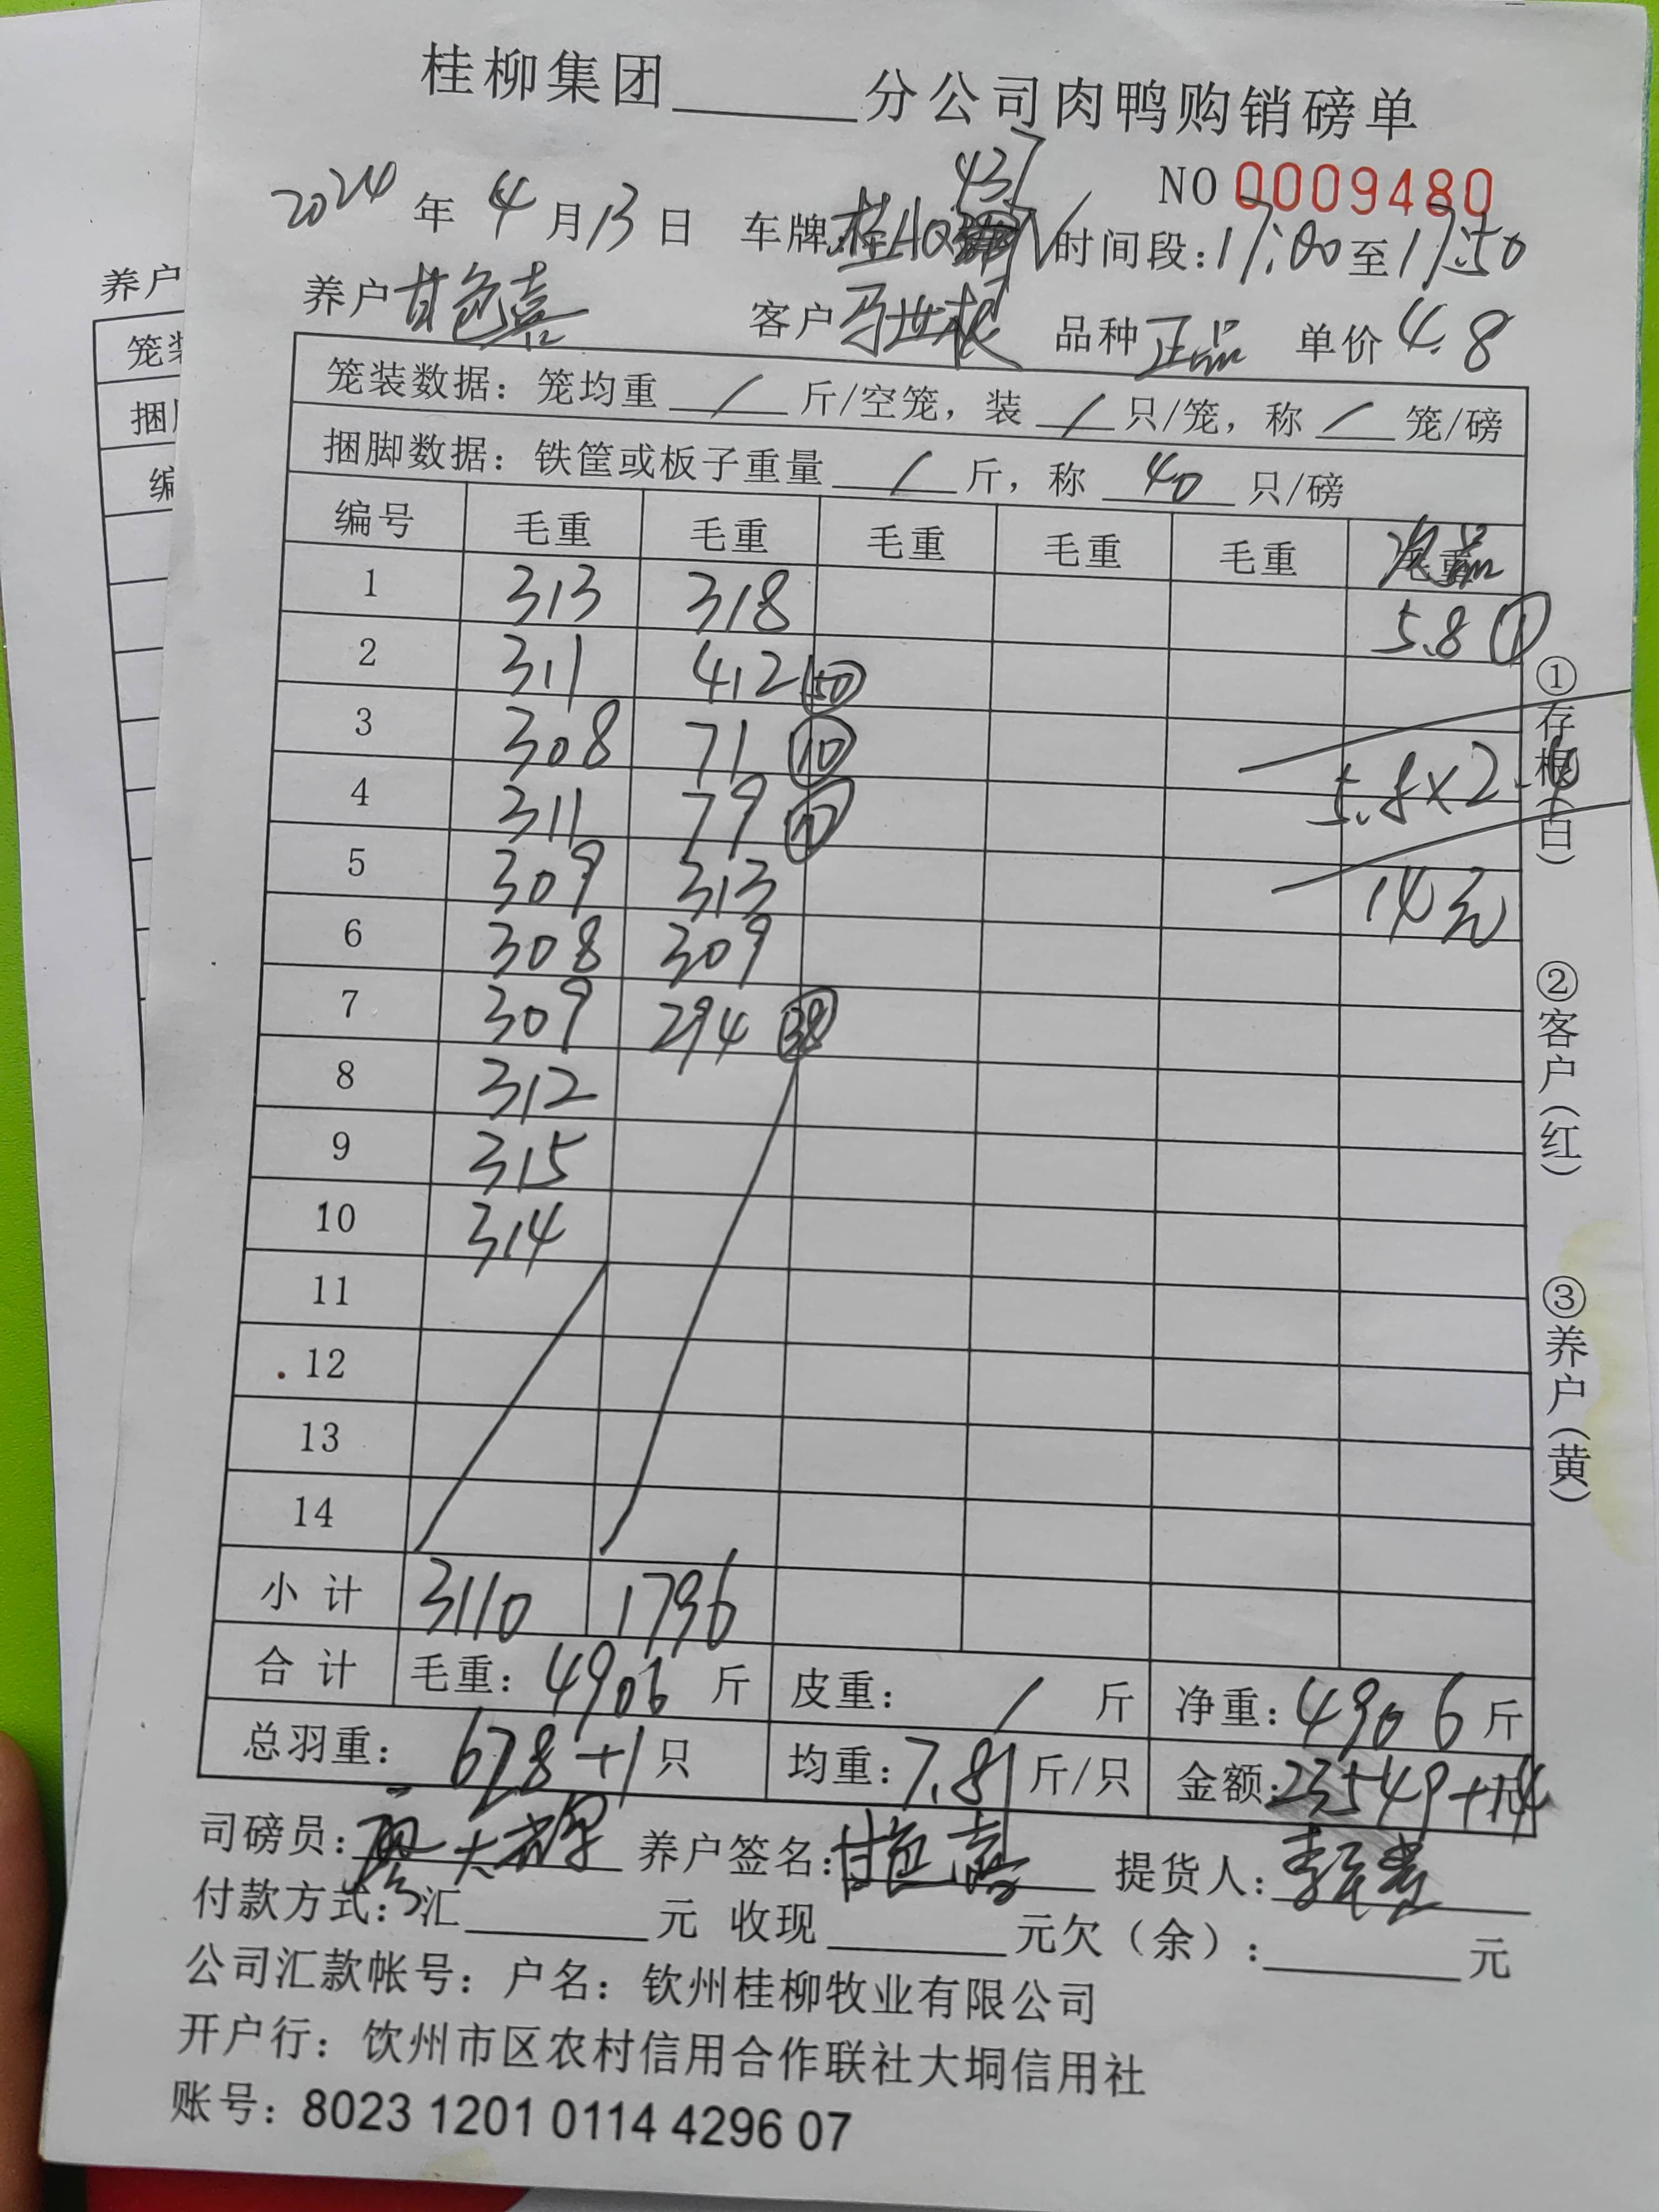 桂柳集团______分公司肉鸭购销磅单
NO 0009480
2024 年 4 月 13 日 车牌: 桂A0 437 时间段: 17:00 至 17:50
养户 甘色嘉 客户 马世 品种 正品 单价 4.8
笼装数据: 笼均重 / 斤/空笼, 装 / 只/笼, 称 / 笼/磅
捆脚数据: 铁筐或板子重量 / 斤, 称 40 只/磅
编号 毛重 毛重 毛重 毛重 毛重 次品
1 313 318 5.8 ①
2 311 412 (50)
3 308 71 (10)
4 311 79 (10) 5.8×2.4
5 309 313 14元
6 308 309
7 309 294 (38)
8 312
9 315
10 314
11
12
13
14
小 计 3110 1796
合 计 毛重: 4906 斤 皮重: / 斤 净重: 4906 斤
总羽重: 628+1 只 均重: 7.81 斤/只 金额: 23549+14
司磅员: 大 养户签名: 甘色嘉 提货人: 李
付款方式: 汇______元 收现______元欠(余):______元
公司汇款帐号: 户名: 钦州桂柳牧业有限公司
开户行: 钦州市区农村信用合作联社大垌信用社
账号: 8023 1201 0114 4296 07
①存根(白)
②客户(红)
③养户(黄)
养户
笼装
捆
编